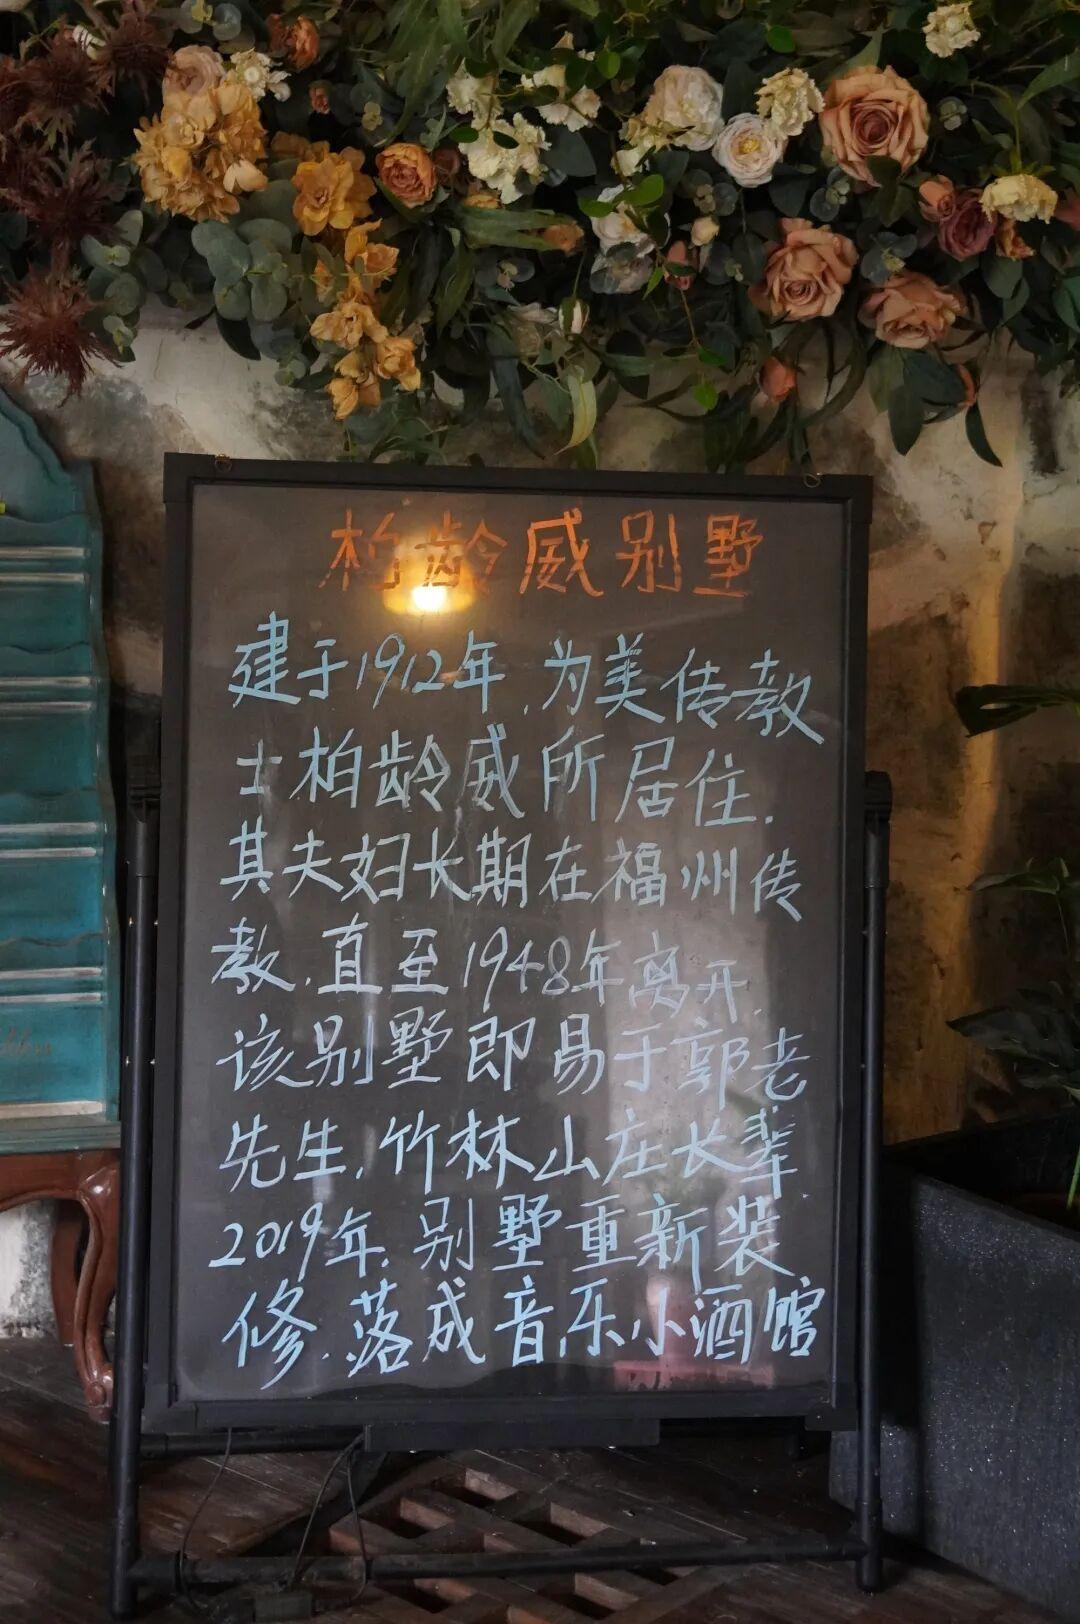 柏龄威别墅
建于1912年,为美传教
士柏龄威所居住.
其夫妇长期在福州传
教.直至1948年离开.
该别墅即易于郭老
先生,竹林山庄长辈
2019年,别墅重新装
修.落成音乐小酒馆